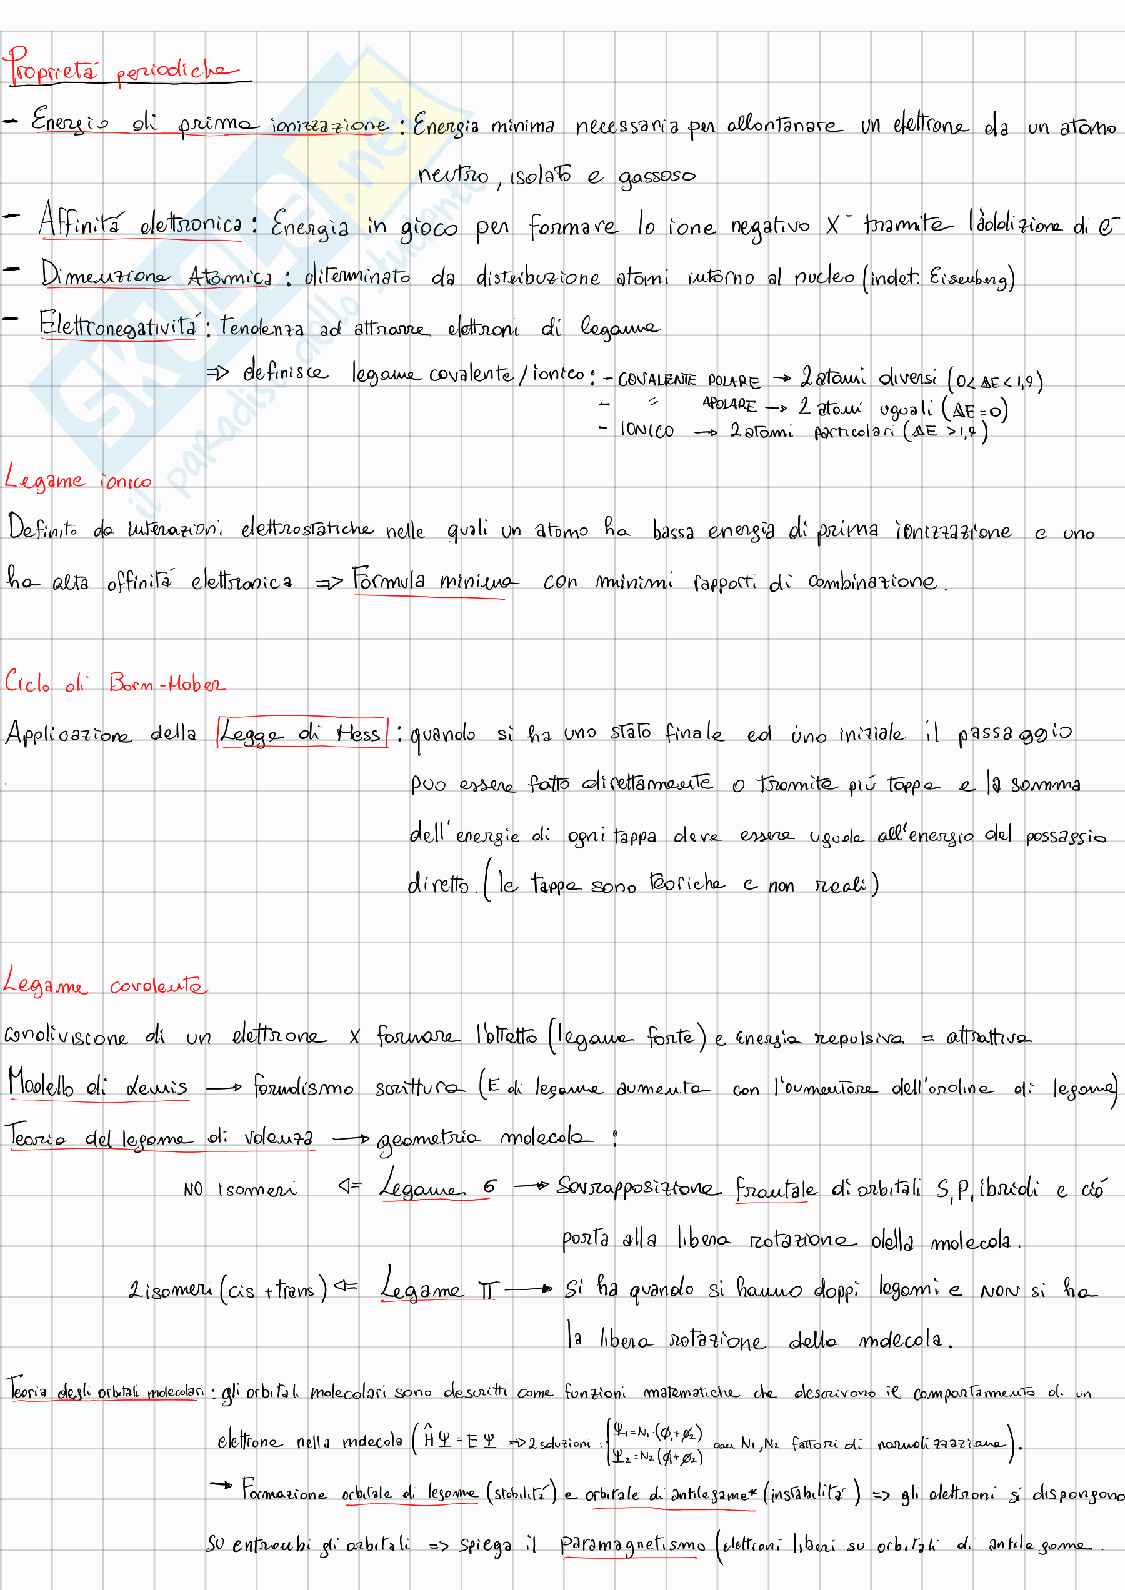 Proprietà periodiche
- Energia di prima ionizzazione : Energia minima necessaria per allontanare un elettrone da un atomo
neutro, isolato e gassoso
- Affinità elettronica : Energia in gioco per formare lo ione negativo X⁻ tramite l'addizione di e⁻
- Dimensione Atomica : diterminato da distribuzione atomi intorno al nucleo (indet. Eisenberg)
- Elettronegatività : tendenza ad attrarre elettroni di legame
⇒ definisce legame covalente/ionico : - COVALENTE POLARE → 2 atomi diversi (0<ΔE<1,9)
- " APOLARE → 2 atomi uguali (ΔE=0)
- IONICO → 2 atomi particolari (ΔE >1,9)
Legame ionico
Definito da interazioni elettrostatiche nelle quali un atomo ha bassa energia di prima ionizzazione e uno
ha alta affinità elettronica ⇒ Formula minima con minimi rapporti di combinazione.
Ciclo di Born-Haber
Applicazione della Legge di Hess : quando si ha uno stato finale ed uno iniziale il passaggio
può essere fatto direttamente o tramite più tappe e la somma
dell'energie di ogni tappa deve essere uguale all'energia del passaggio
diretto. (le tappe sono teoriche e non reali)
Legame covalente
condivisione di un elettrone x formare l'ottetto (legame forte) e energia repulsiva = attrattiva
Modello di Lewis → formalismo scrittura (E di legame aumenta con l'aumentare dell'ordine di legame)
Teoria del legame di valenza → geometria molecola :
NO isomeri ⇐ Legame σ → Sovrapposizione frontale di orbitali S, P, ibridi e ciò
porta alla libera rotazione della molecola.
2 isomeri (cis + trans) ⇐ Legame π → Si ha quando si hanno doppi legami e NON si ha
la libera rotazione della molecola.
Teoria degli orbitali molecolari : gli orbitali molecolari sono descritti come funzioni matematiche che descrivono il comportamento di un
elettrone nella molecola (ĤΨ = EΨ ⇒ 2 soluzioni {Ψ₁=N₁·(φ₁+φ₂) Ψ₂=N₂(φ₁+φ₂) con N₁,N₂ fattori di normalizzazione).
→ Formazione orbitale di legame (stabilità) e orbitale di antilegame* (instabilità) ⇒ gli elettroni si dispongono
su entrambi gli orbitali ⇒ spiega il paramagnetismo (elettroni liberi su orbitali di antilegame.
SKUOLA.net
il paradiso dello studente